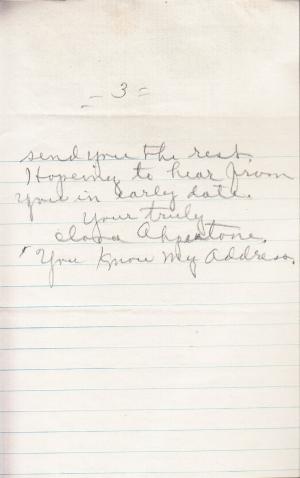 - 3 -
send you the rest.
Hopeing to hear from
you in early date.
Your truly
Clara Ahpeatone.
You know my address.